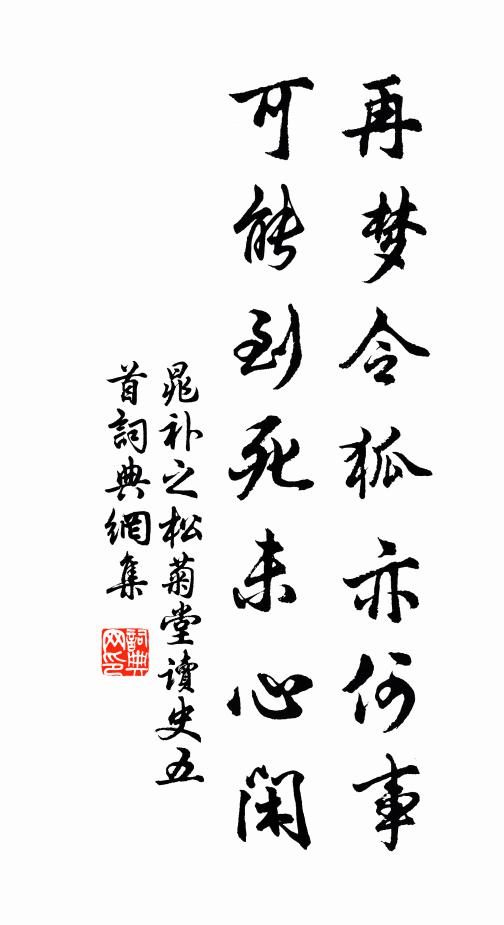 再梦令狐亦何事
可能到死未心闲
晁补之松菊堂讀史五
首詞典網集
詞典网印